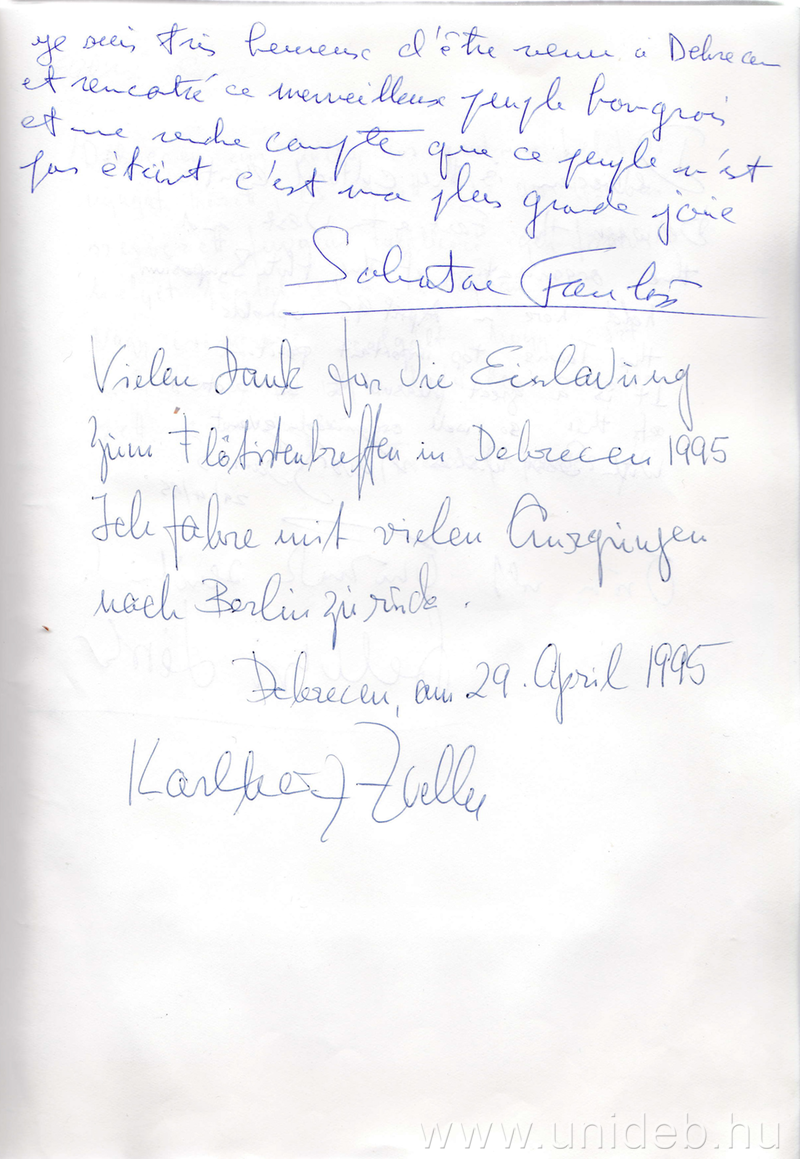 je suis très heureux d'être venu à Debrecen
et rencotré ce merveilleux peuple hongrois
et me rendre compte que ce peuple n'est
pas éteint c'est ma plus grande joie
Salvatore
Vielen Dank für die Einladung
zum Flötistentreffen in Debrecen 1995
Ich fahre mit vielen
nach Berlin zurück.
Debrecen, am 29. April 1995
Karlheinz Zoeller
www.unideb.hu